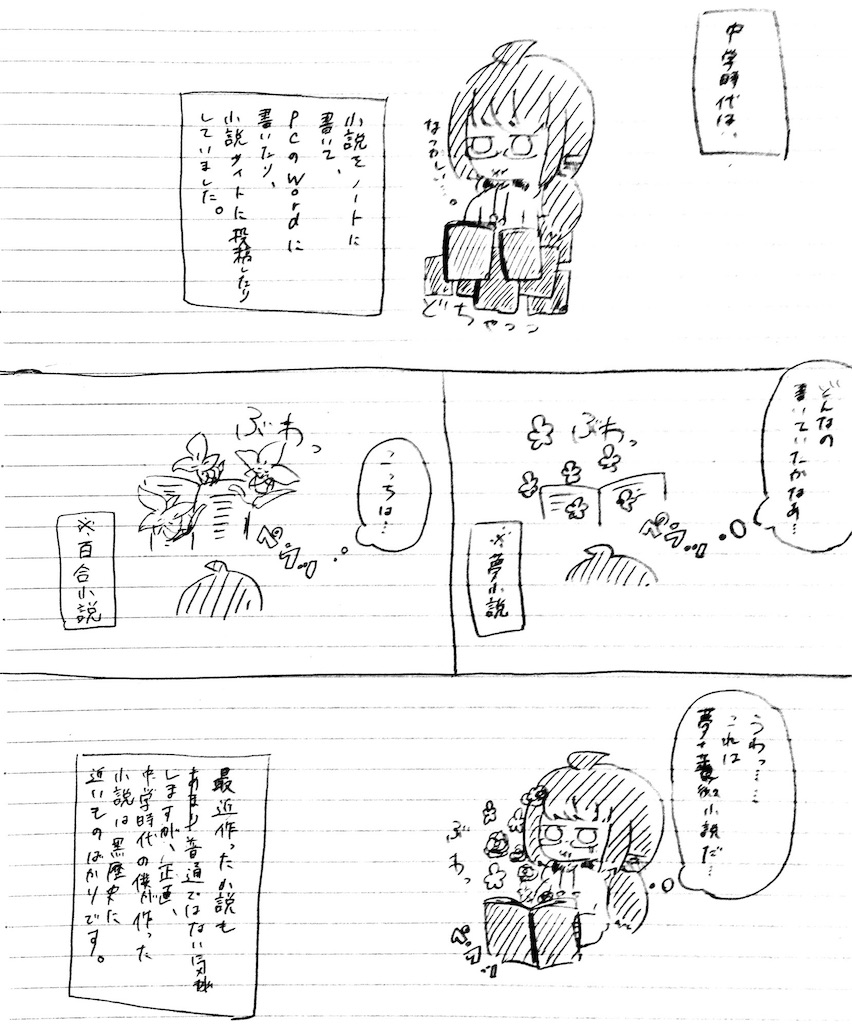 中学時代は、
なつかしい…。
どちゃっっ
小説をノートに
書いて、
PCのWordに
書いたり、
小説サイトに投稿したり
していました。
どんなの
書いていたかなあ…
ぶわっ
ペラッ
※夢小説
こっちは…
ぶわっ
ペラッ
※百合小説
うわっ……
これは
夢+薔薇小説だ…
ぶわっ
ペラッ
最近作った小説も
あまり普通ではない気が
しますが、正直、
中学時代の僕が作った
小説は黒歴史に
近いものばかりです。